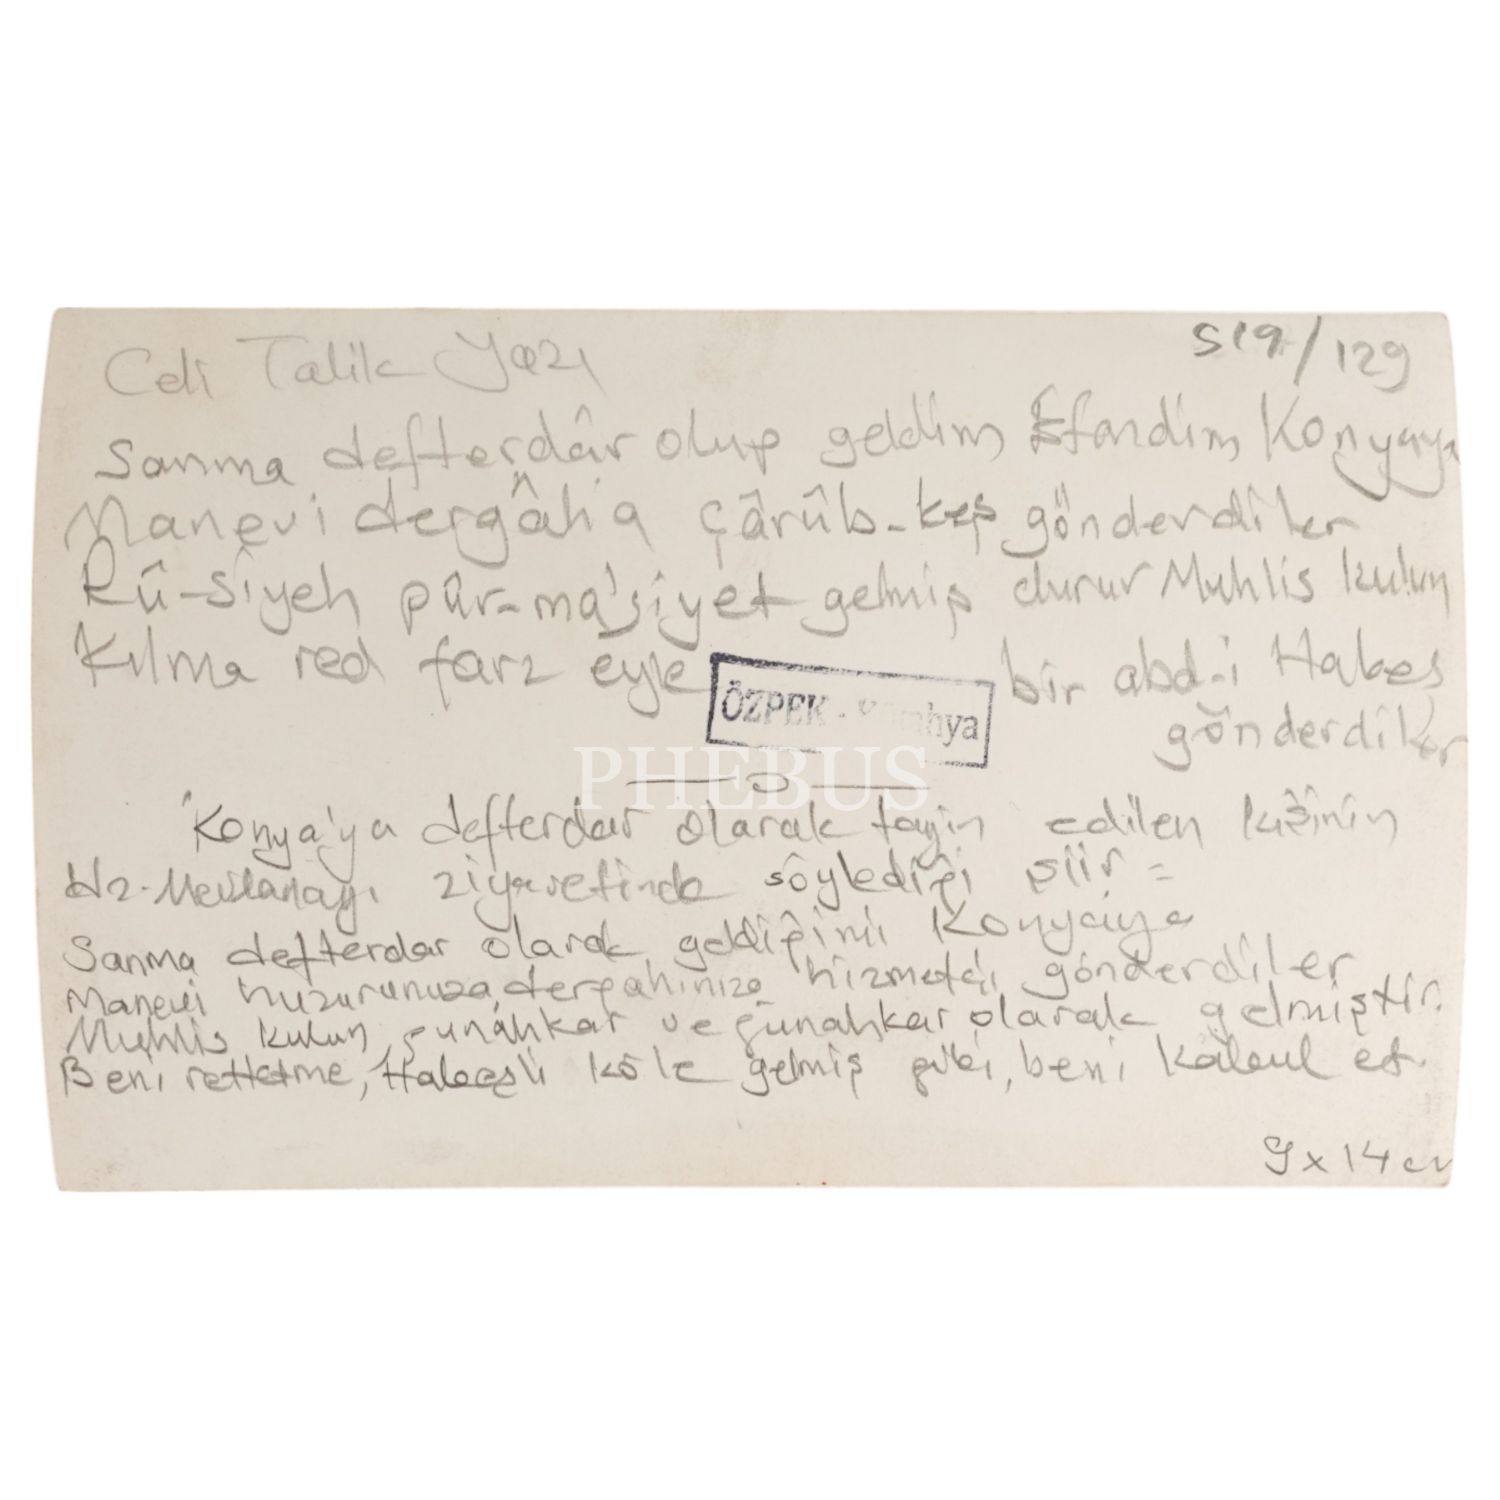 Celi Talik Yazı
519/129
Sanma defterdâr olup geldim Efandim Konyaya
Manevi dergâha çârûb-keş gönderdiler
Rû-siyeh pûr-ma'siyet gelmiş durur Muhlis kulun
Kılma red farz eyle bir abd-i Habeş
gönderdiler
ÖZPEK -
PHEBUS
Konya'ya defterdar olarak tayin edilen kişinin
Hz. Mevlanayı ziyaretinde söylediği şiir =
Sanma defterdar olarak geldiğimi Konya'ya
Manevi huzurunuza, dergahınıza hizmetçi gönderdiler
Muhlis kulun günahkar ve günahkar olarak gelmiştir.
Beni rettetme, Habeşli köle gelmiş gibi, beni kabul et.
9x14 cm